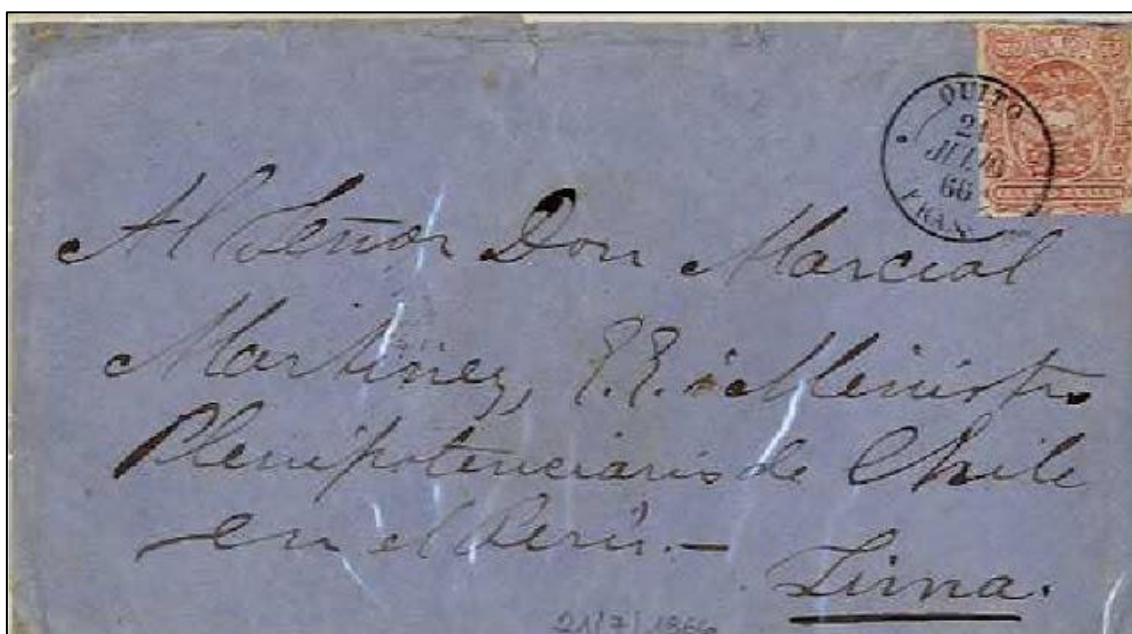 QUITO
21
JULIO
66
FRAN
Al Señor Don Marcial
Martinez, E.E. i Ministro
Plenipotenciario de Chile
en el Perú.—
Lima.
21/7/1866